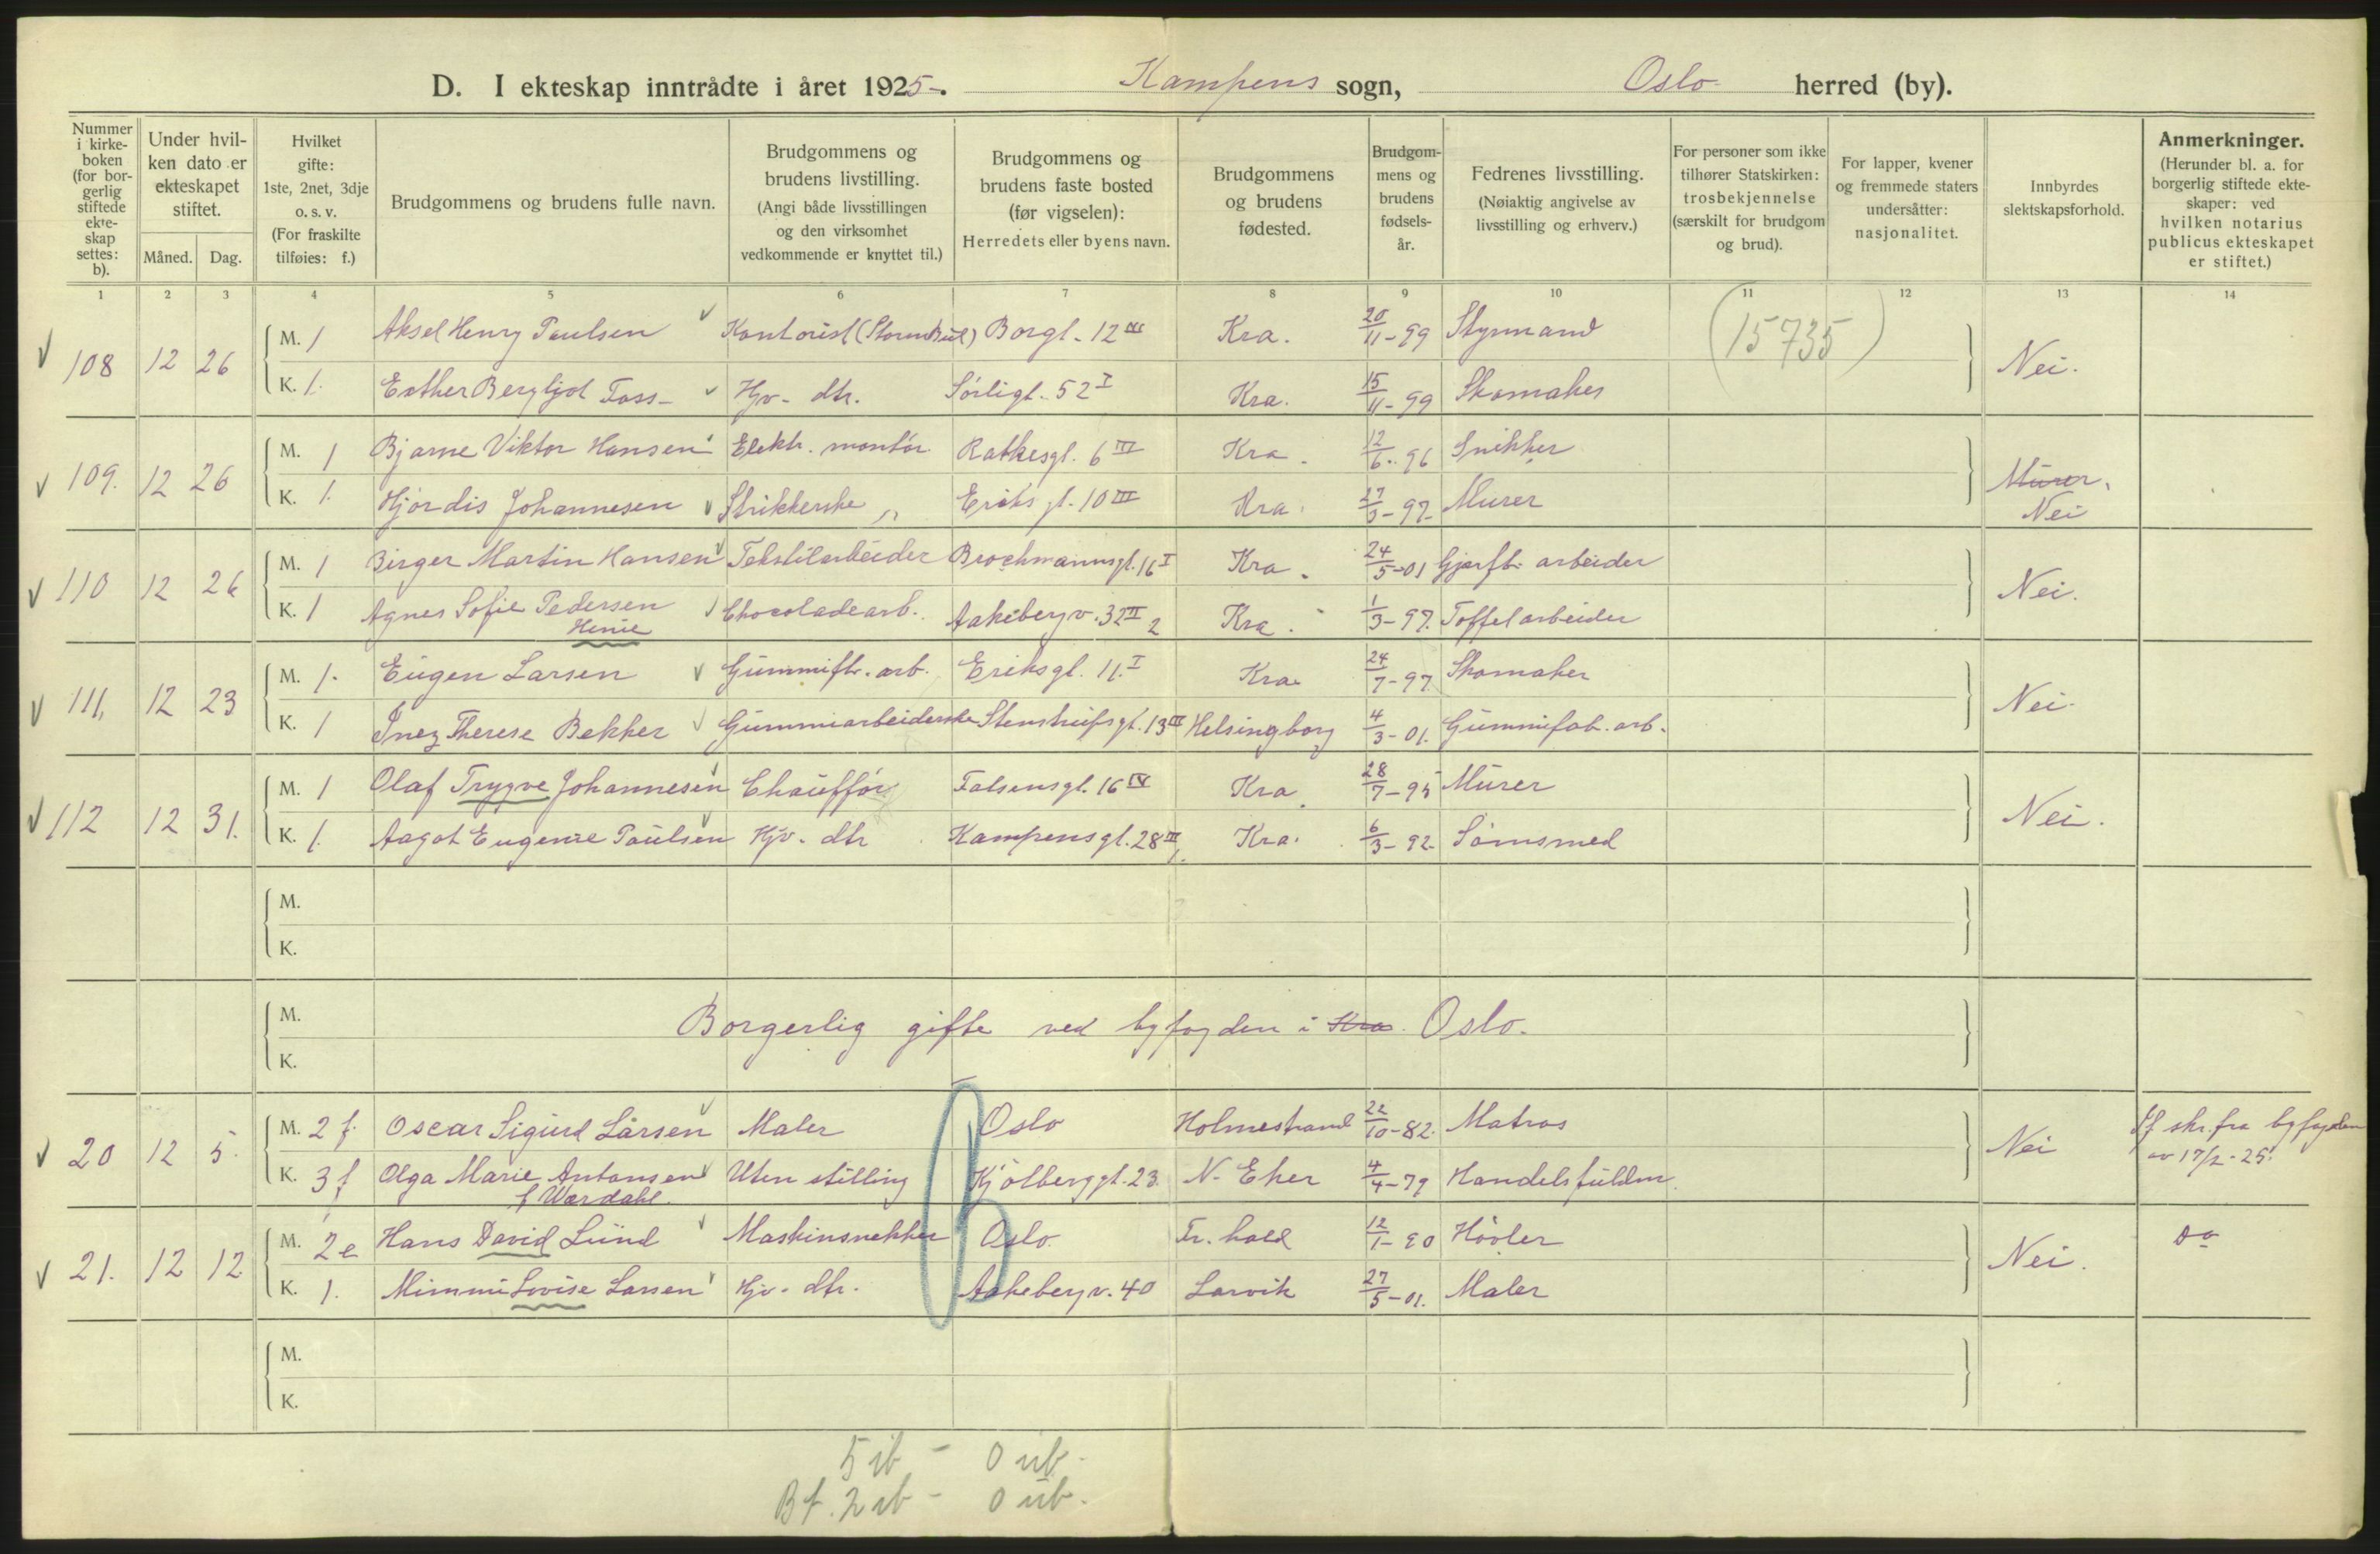 D. I ekteskap inntrådte i året 1925. Kampens sogn, Oslo herred (by).
Nummer i kirkeboken (for borgerlig stiftede ekteskap settes: b).
Under hvilken dato er ekteskapet stiftet.
Måned. Dag.
Hvilket gifte: 1ste, 2net, 3dje o. s. v. (For fraskilte tilføies: f.)
Brudgommens og brudens fulle navn.
Brudgommens og brudens livstilling. (Angi både livsstillingen og den virksomhet vedkommende er knyttet til.)
Brudgommens og brudens faste bosted (før vigselen): Herredets eller byens navn.
Brudgommens og brudens fødested.
Brudgommens og brudens fødselsår.
Fedrenes livsstilling. (Nøiaktig angivelse av livsstilling og erhverv.)
For personer som ikke tilhører Statskirken: trosbekjennelse (særskilt for brudgom og brud).
For lapper, kvener og fremmede staters undersåtter: nasjonalitet.
Innbyrdes slektskapsforhold.
Anmerkninger. (Herunder bl. a. for borgerlig stiftede ekteskaper: ved hvilken notarius publicus ekteskapet er stiftet.)
1 2 3 4 5 6 7 8 9 10 11 12 13 14
108 12 26 M. 1 Aksel Henry Paulsen Kontorist (Storm Bull) Borgt. 12 III Kra. 20/11-99 Styrmand (15735) Nei.
K. 1. Esther Bergljot Foss Hjv. dtr. Sørligt. 52 I Kra. 15/11-99 Skomaker
109. 12 26 M. 1 Bjarne Viktor Hansen Elektr. montör Rathesgt. 6 III Kra. 12/6-96 Snikker Murer.
K. 1. Hjördis Johannesen Strikkerske " Eriksgt. 10 III Kra. 27/3-97 Murer Nei
110 12 26 M. 1 Birger Martin Hansen Tekstilarbeider Brochmannsgt. 16 I Kra. 24/5-01 Gjærfb. arbeider Nei.
K. 1 Agnes Sofie Pedersen Chocoladearb. Aakebergv. 32 II 2 Kra. 1/3-97. Toffelarbeider
Henie
111, 12 23 M. 1. Eugen Larsen Gummifbr. arb. Eriksgt. 11. I Kra 24/7-97 Skomaker Nei.
K. 1 Inez Therese Bekker Gummiarbeiderske Stenstrupsgt. 13 III Helsingborg 4/3-01. Gummifab. arb.
112 12 31. M. 1 Olaf Trygve Johannesen Chaufför Falsensgt. 16 IV Kra. 28/7-95 Murer Nei.
K. 1. Aagot Eugenie Paulsen Hjv. dtr Kampensgt. 28 III Kra. 6/3-92. Sömsmed
M.
K.
M.
Borgerlig gifte ved byfogden i Kra. Oslo.
K.
20 12 5. M. 2 f. Oscar Sigurd Larsen Maler Oslo Holmestrand 22/10-82. Matros Nei skr. fra byfogden
K. 3 f Olga Marie Antonsen Uten stilling Kjölberggt. 23. N. Eker 4/4-79 Handelsfuldm. av 17/2-25.
f Wærdahl.
21. 12 12 M. 2 e Hans David Lund Maskinsnekker Oslo Fr. hald 12/1-90 Hövler Nei. Do
K. 1. Mimmi Lovise Larsen Hjv. dtr. Aakebergv. 40 Larvik 27/5-01. Maler
M.
K.
5 ib - 0 ub.
Bf. 2 ib - 0 ub.